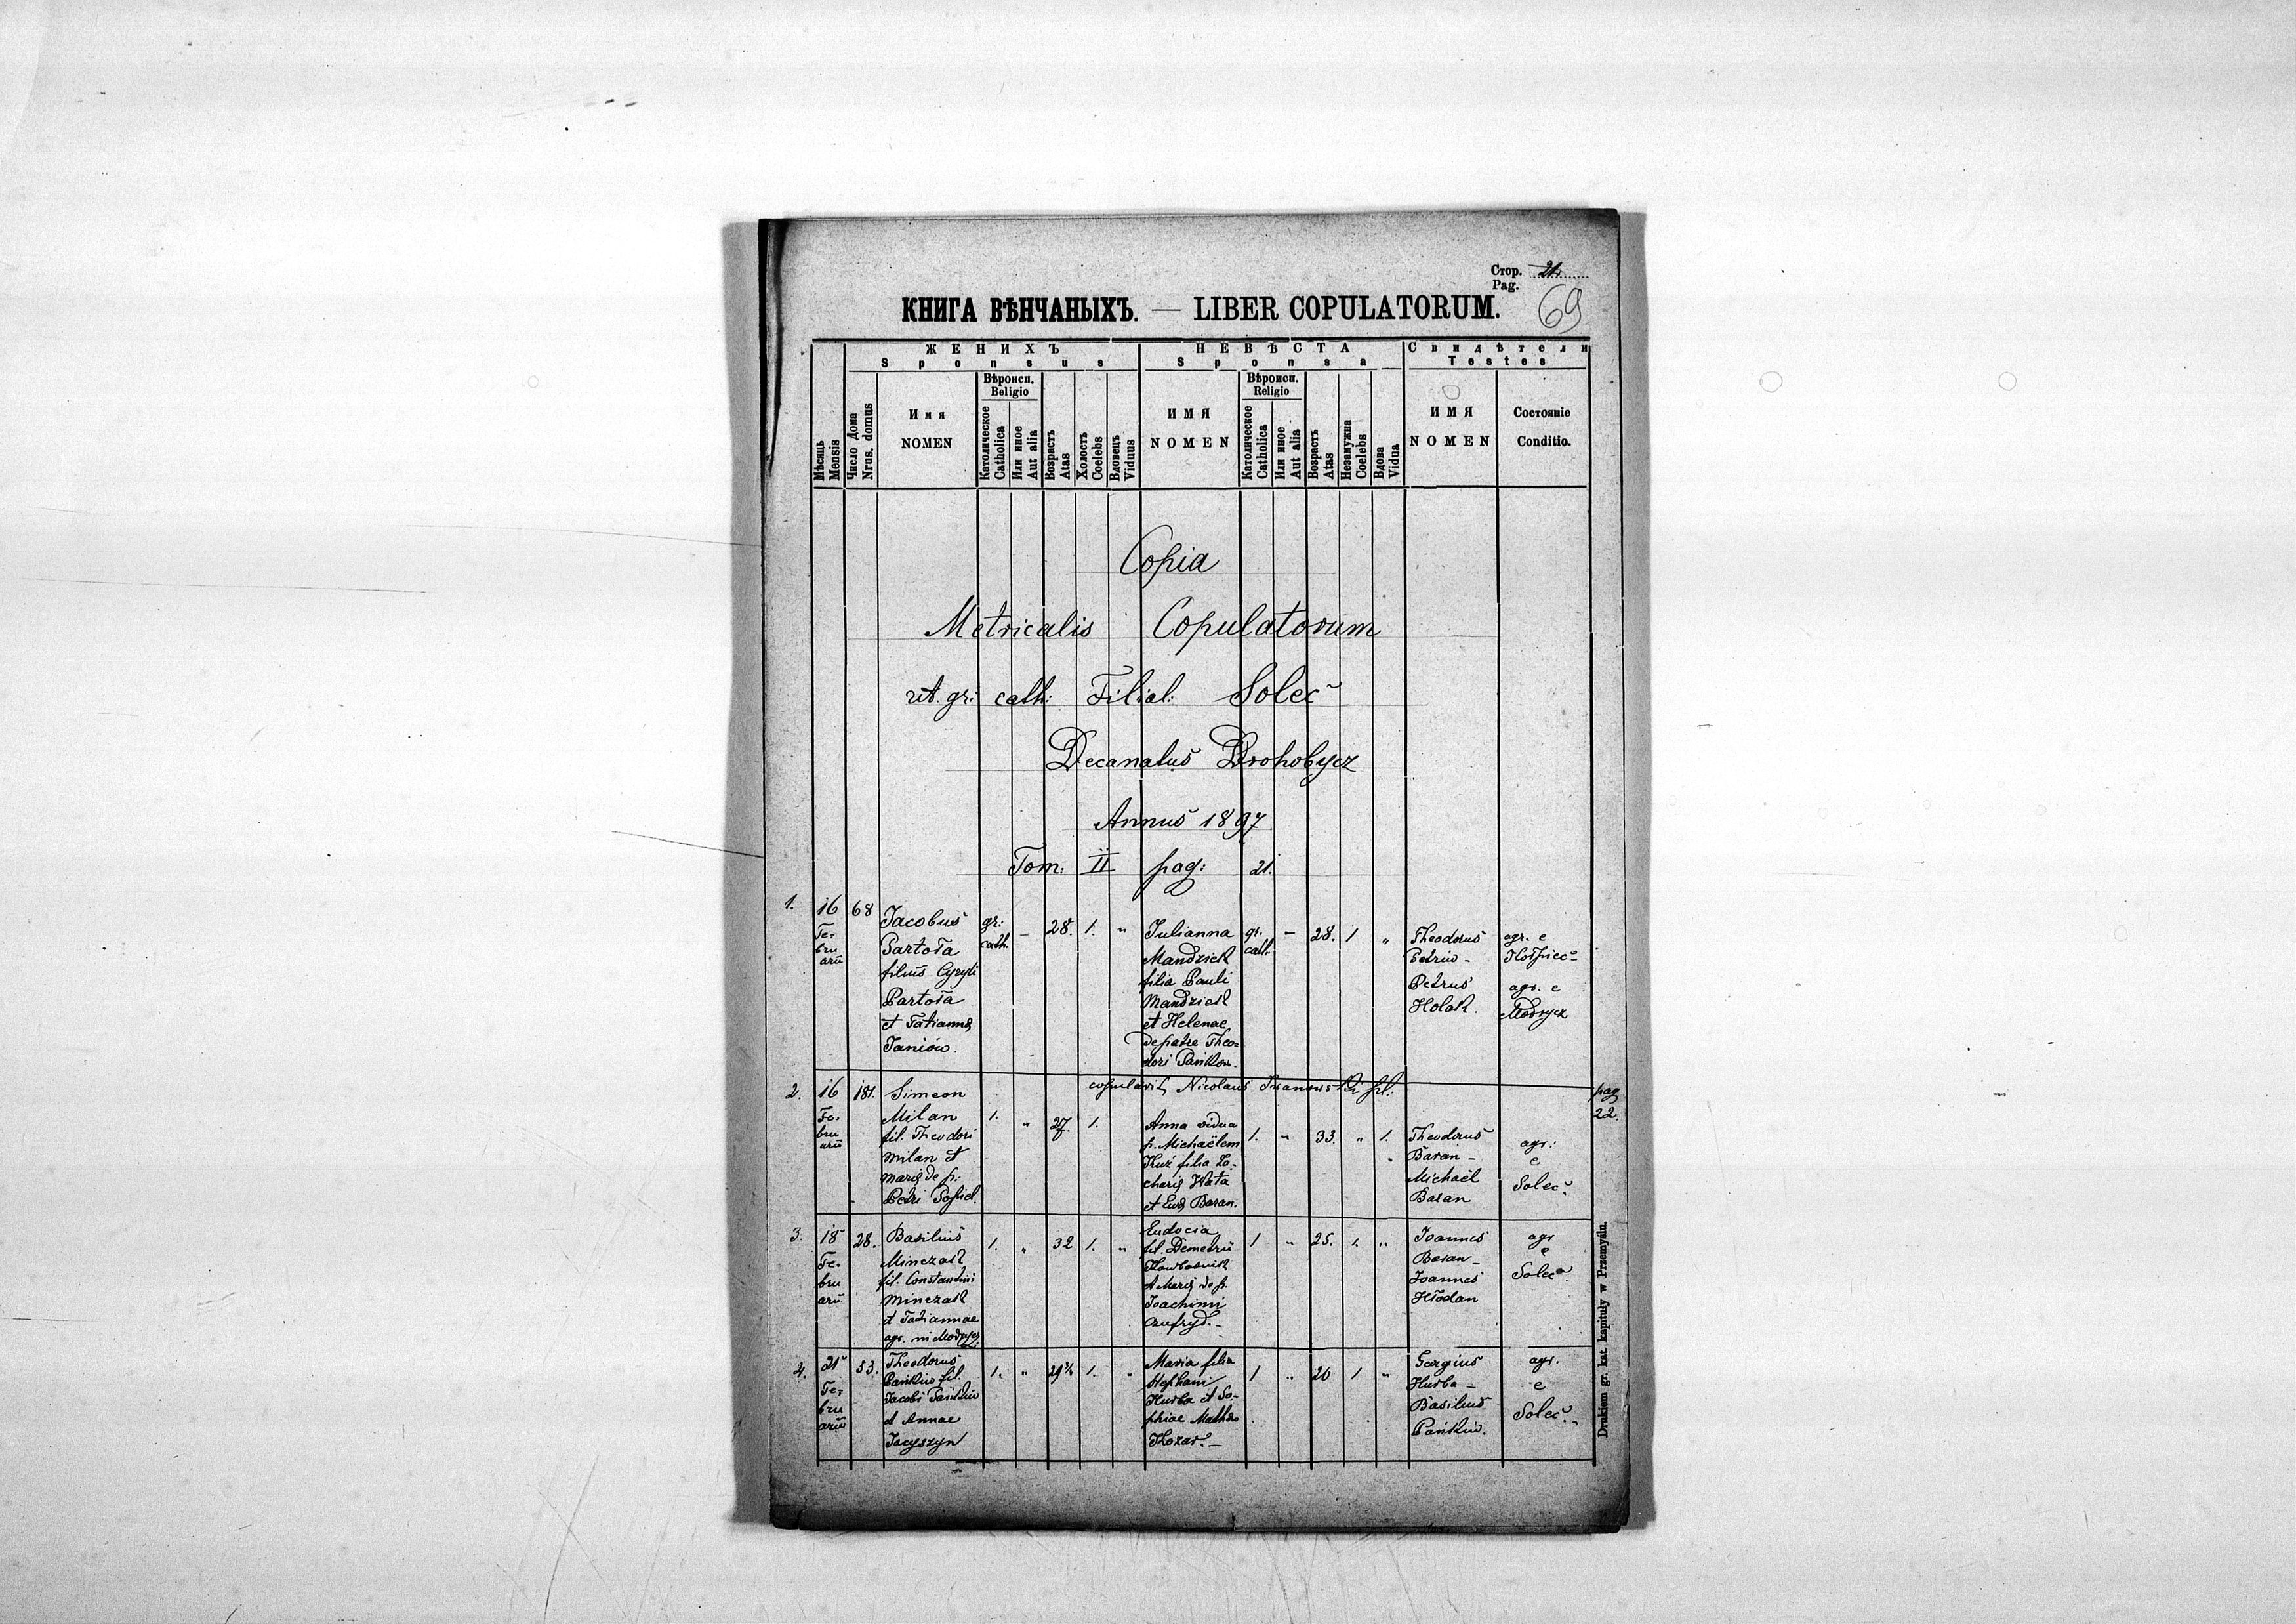 Стор. 21.
Pag.
69
КНИГА ВѢНЧАНЫХЪ. — LIBER COPULATORUM.
Мѣсяць
Mensis
Число Дома
Nrus. domus
ЖЕНИХЪ
Sponsus
Имя
NOMEN
Вѣроисп.
Religio
Католическое
Catholica
Или иное
Aut alia
Возрастъ
Atas
Холостъ
Coelebs
Вдовецъ
Viduus
НЕВѢСТА
Sponsa
ИМЯ
NOMEN
Вѣроисп.
Religio
Католическое
Catholica
Или иное
Aut alia
Возрастъ
Atas
Незамужна
Coelebs
Вдова
Vidua
Свидѣтели
Testes
ИМЯ
NOMEN
Состояніе
Conditio.
Copia
Metricalis Copulatorum
rit. gr: cath: Filial: Solec
Decanatus Drohobycz
Annus 1897
Tom: II pag: 21.
1.
16
Fe-
bru
arii
68
Jacobus
Partoła
filius Cyryli
Partoła
et Tatiannę
Janiów.
gr:
cath.
–
28.
1.
"
Julianna
Mandziek
filia Pauli
Mandziek
et Helenae
de patre Theo-
dori Pańków.
gr.
cath.
–
28.
1
"
Theodorus
Petriw -
Petrus
Holak.
agr. e
agr. e
Modrycz
copulavit Nicolaus
2.
16
Fe-
bru
arii
181.
Simeon
Milan
fil. Theodori
Milan et
Marię de p:
Petri Popiel.
1.
"
27.
1.
Anna vidua
p. Michaëlem
Kuź filia Za-
charię Wata
et Evę Baran.
1.
"
33.
"
1.
Theodorus
Baran -
Michaël
Baran
agr:
e
Solec.
pag
22.
3.
18
Fe-
bru
arii
28.
Basilius
Minczak
fil. Constantini
Minczak
et Tatiannae
agr. in Modrycz
1.
"
32
1.
"
Eudocia
fil. Demetrii
et Marię de p.
Joachimi
1
"
25.
1.
"
Joannes
Baran -
Joannes
Hłodan
agr
e
Solec.
4.
21
Fe-
bru
arii
53.
Theodorus
Pańkiw fil.
Jacobi Pańkiw
et Annae
Jacyszyn
1.
"
1.
"
Maria filia
Stephani
Hurba et So-
phiae
Kozar. -
1
"
20
1
"
Georgius
Hurba -
Basilius
Pańkiw.
agr.
e
Solec.
Drukiem gr. kat. kapituły w Przemyślu.